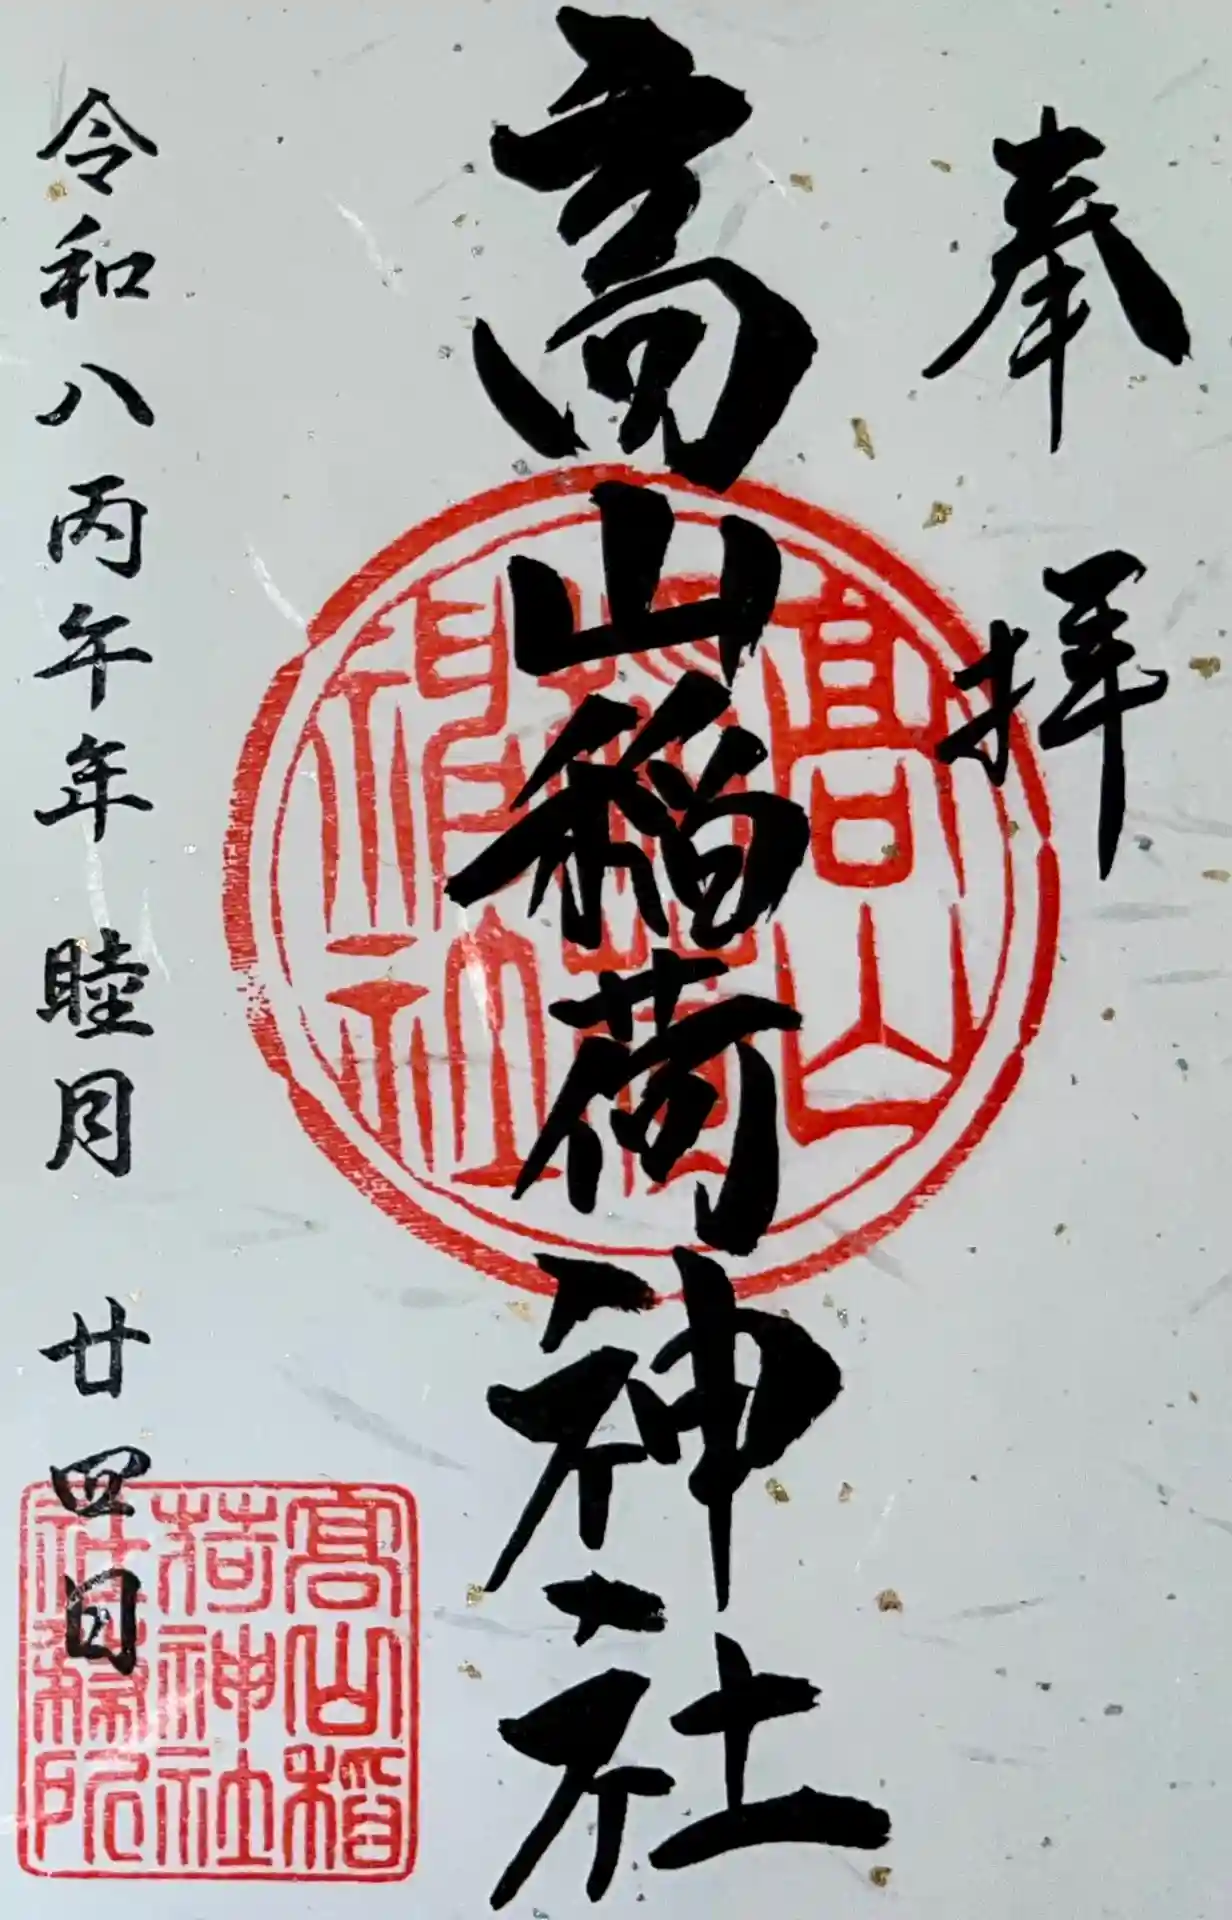 奉拝
高山稲荷神社
令和八丙午年 睦月 廿四日
高山稲
荷神社
社務所